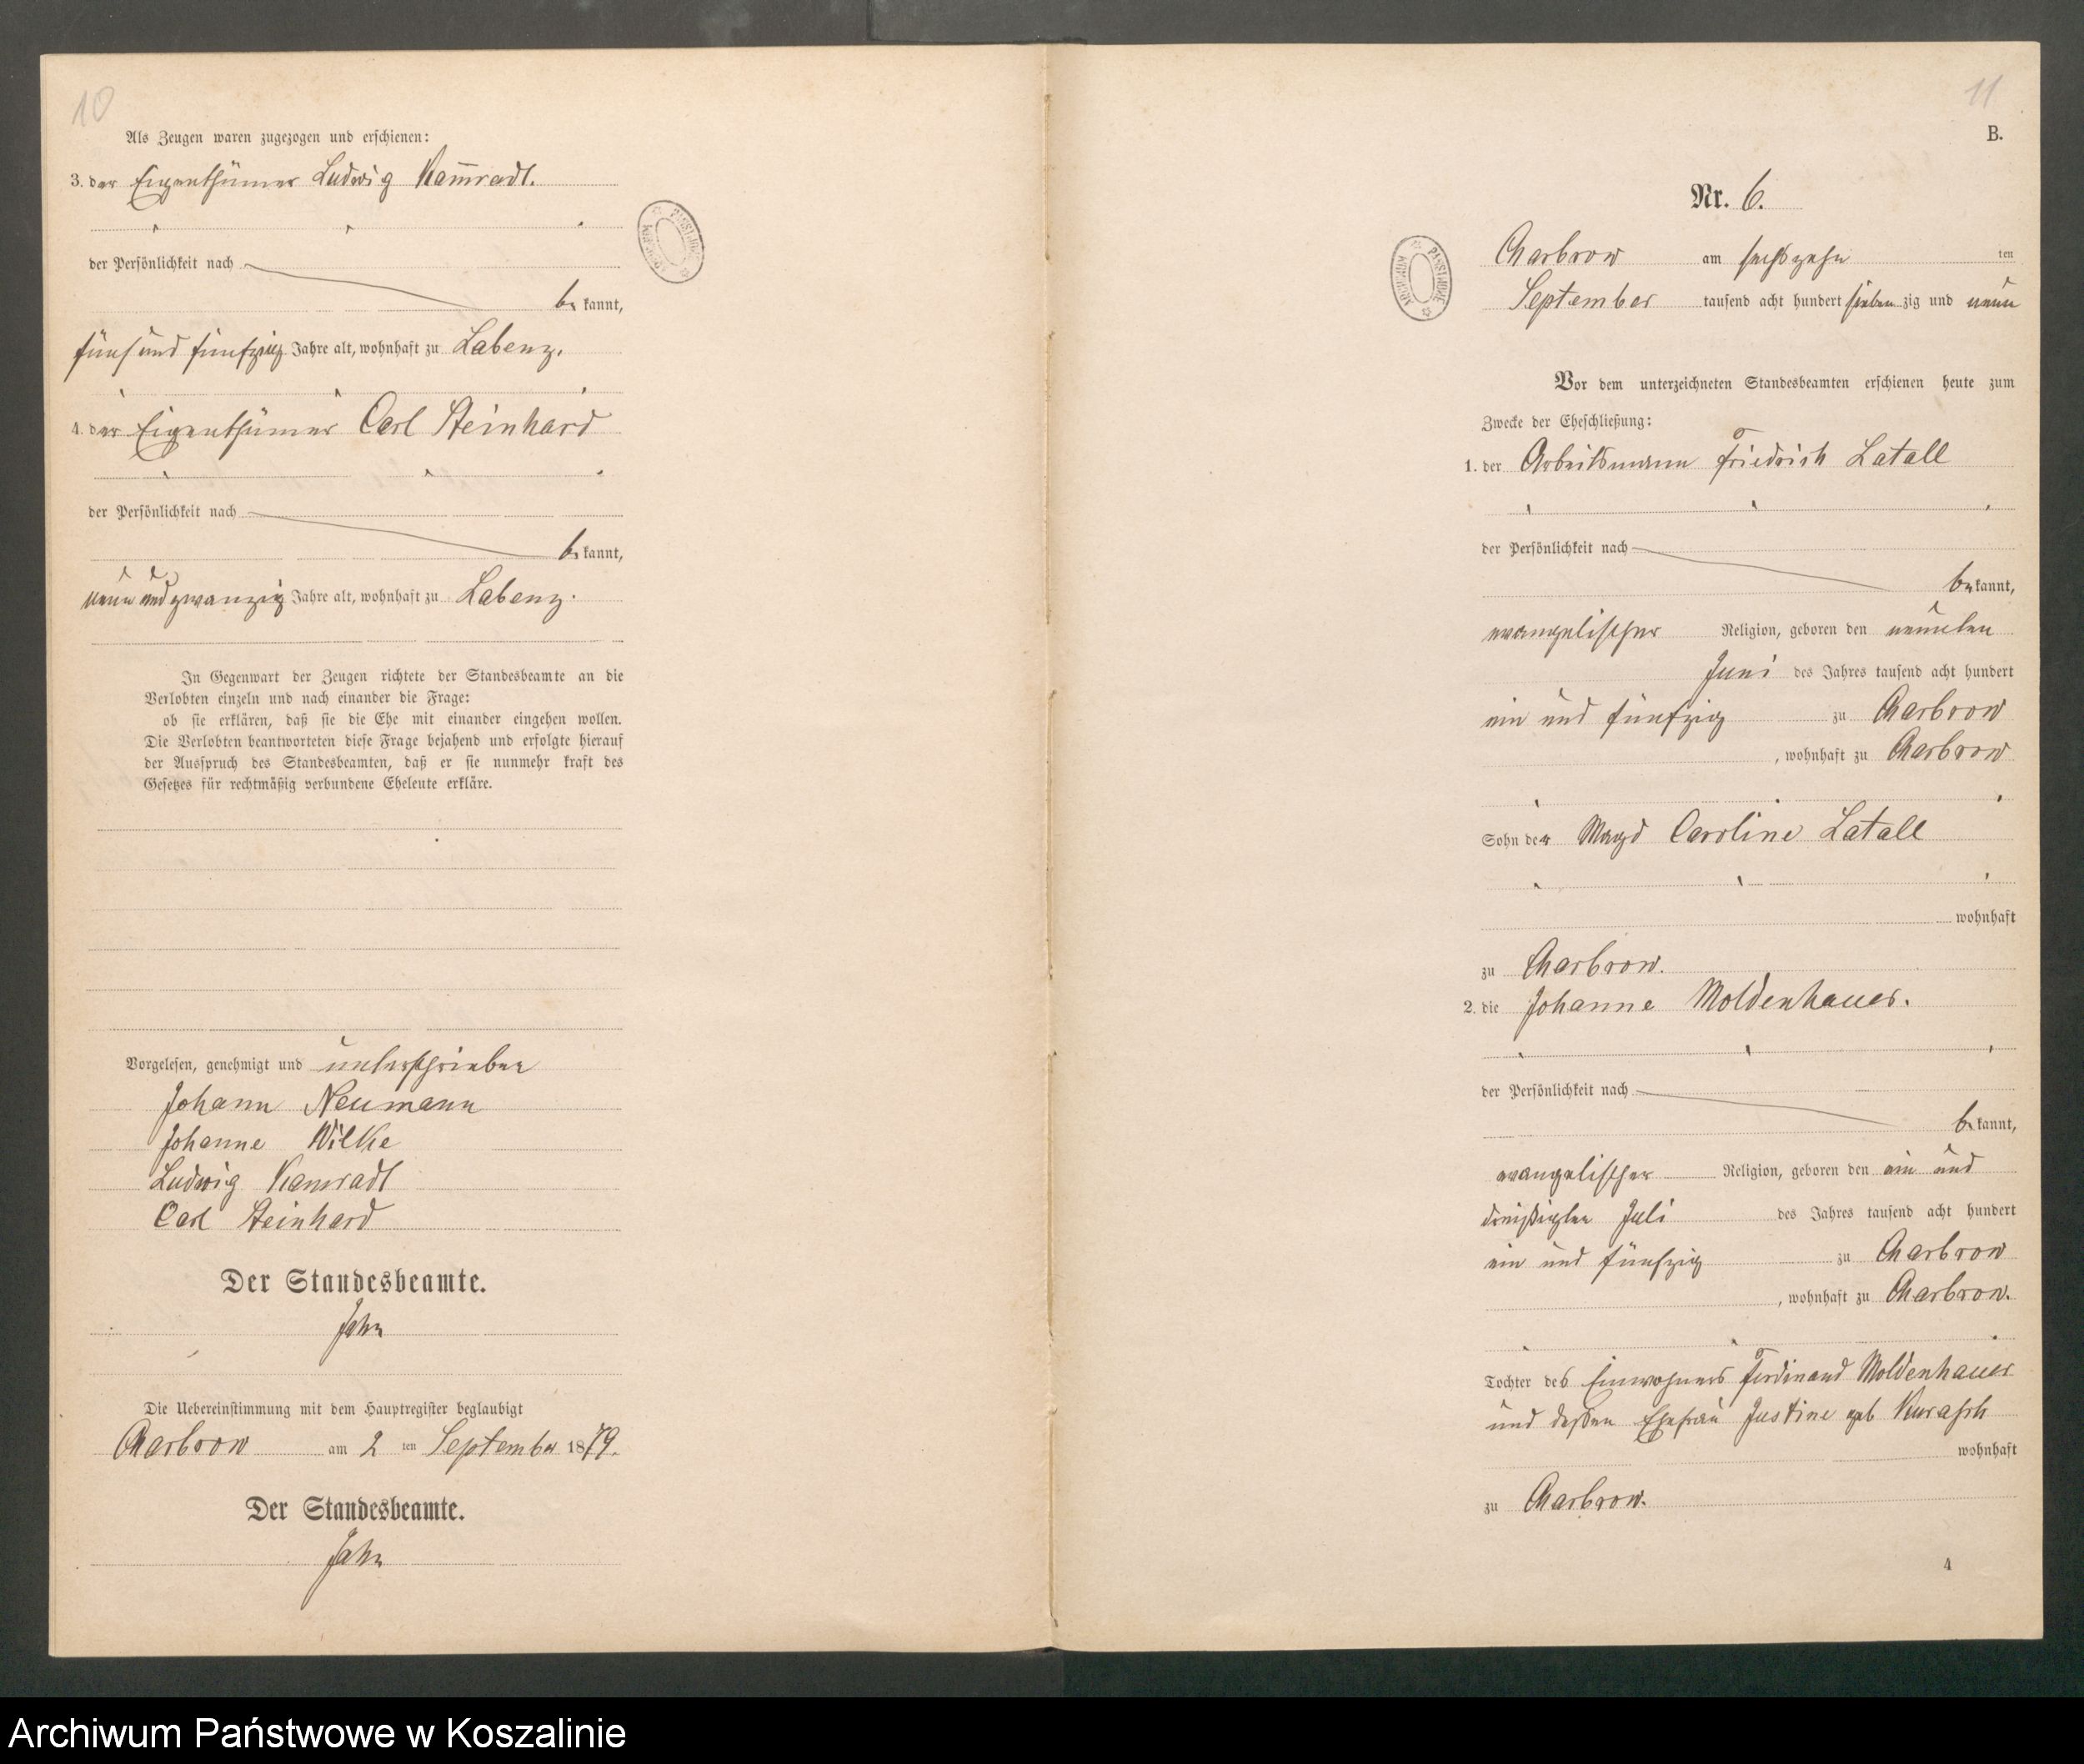 10
Als Zeugen waren zugezogen und erschienen:
3. der Eigenthümer Ludwig Kam̄radt.
der Persönlichkeit nach
be kannt,
fünf und fünfzig Jahre alt, wohnhaft zu Labenz.
4. der Eigenthümer Carl Steinhard
der Persönlichkeit nach
be kannt,
neun und zwanzig Jahre alt, wohnhaft zu Labenz.
In Gegenwart der Zeugen richtete der Standesbeamte an die
Verlobten einzeln und nach einander die Frage:
ob sie erklären, daß sie die Ehe mit einander eingehen wollen.
Die Verlobten beantworteten diese Frage bejahend und erfolgte hierauf
der Ausspruch des Standesbeamten, daß er sie nunmehr kraft des
Gesetzes für rechtmäßig verbundene Eheleute erkläre.
Vorgelesen, genehmigt und unterschrieben
Johann Neumann
Johanne Wilke
Ludwig Kamradt
Carl Steinhard
Der Standesbeamte.
Jahn
Die Uebereinstimmung mit dem Hauptregister beglaubigt
Charbrow am 2 ten September 1879.
Der Standesbeamte.
Jahn
11
B.
Nr. 6.
Charbrow am sechszehn ten
September tausend acht hundert sieben zig und neun
Vor dem unterzeichneten Standesbeamten erschienen heute zum
Zwecke der Eheschließung:
1. der Arbeitsmann Friedrich Latall
der Persönlichkeit nach
be kannt,
evangelischer Religion, geboren den neunten
Juni des Jahres tausend acht hundert
ein und fünfzig zu Charbrow
, wohnhaft zu Charbrow
Sohn der Magd Caroline Latall
wohnhaft
zu Charbrow.
2. die Johanne Moldenhauer.
der Persönlichkeit nach
be kannt,
evangelischer Religion, geboren den ein und
dreißigsten Juli des Jahres tausend acht hundert
ein und fünfzig zu Charbrow
, wohnhaft zu Charbrow.
Tochter des Einwohners Ferdinand Moldenhauer
und dessen Ehefrau Justine geb
wohnhaft
zu Charbrow.
4
Archiwum Państwowe w Koszalinie